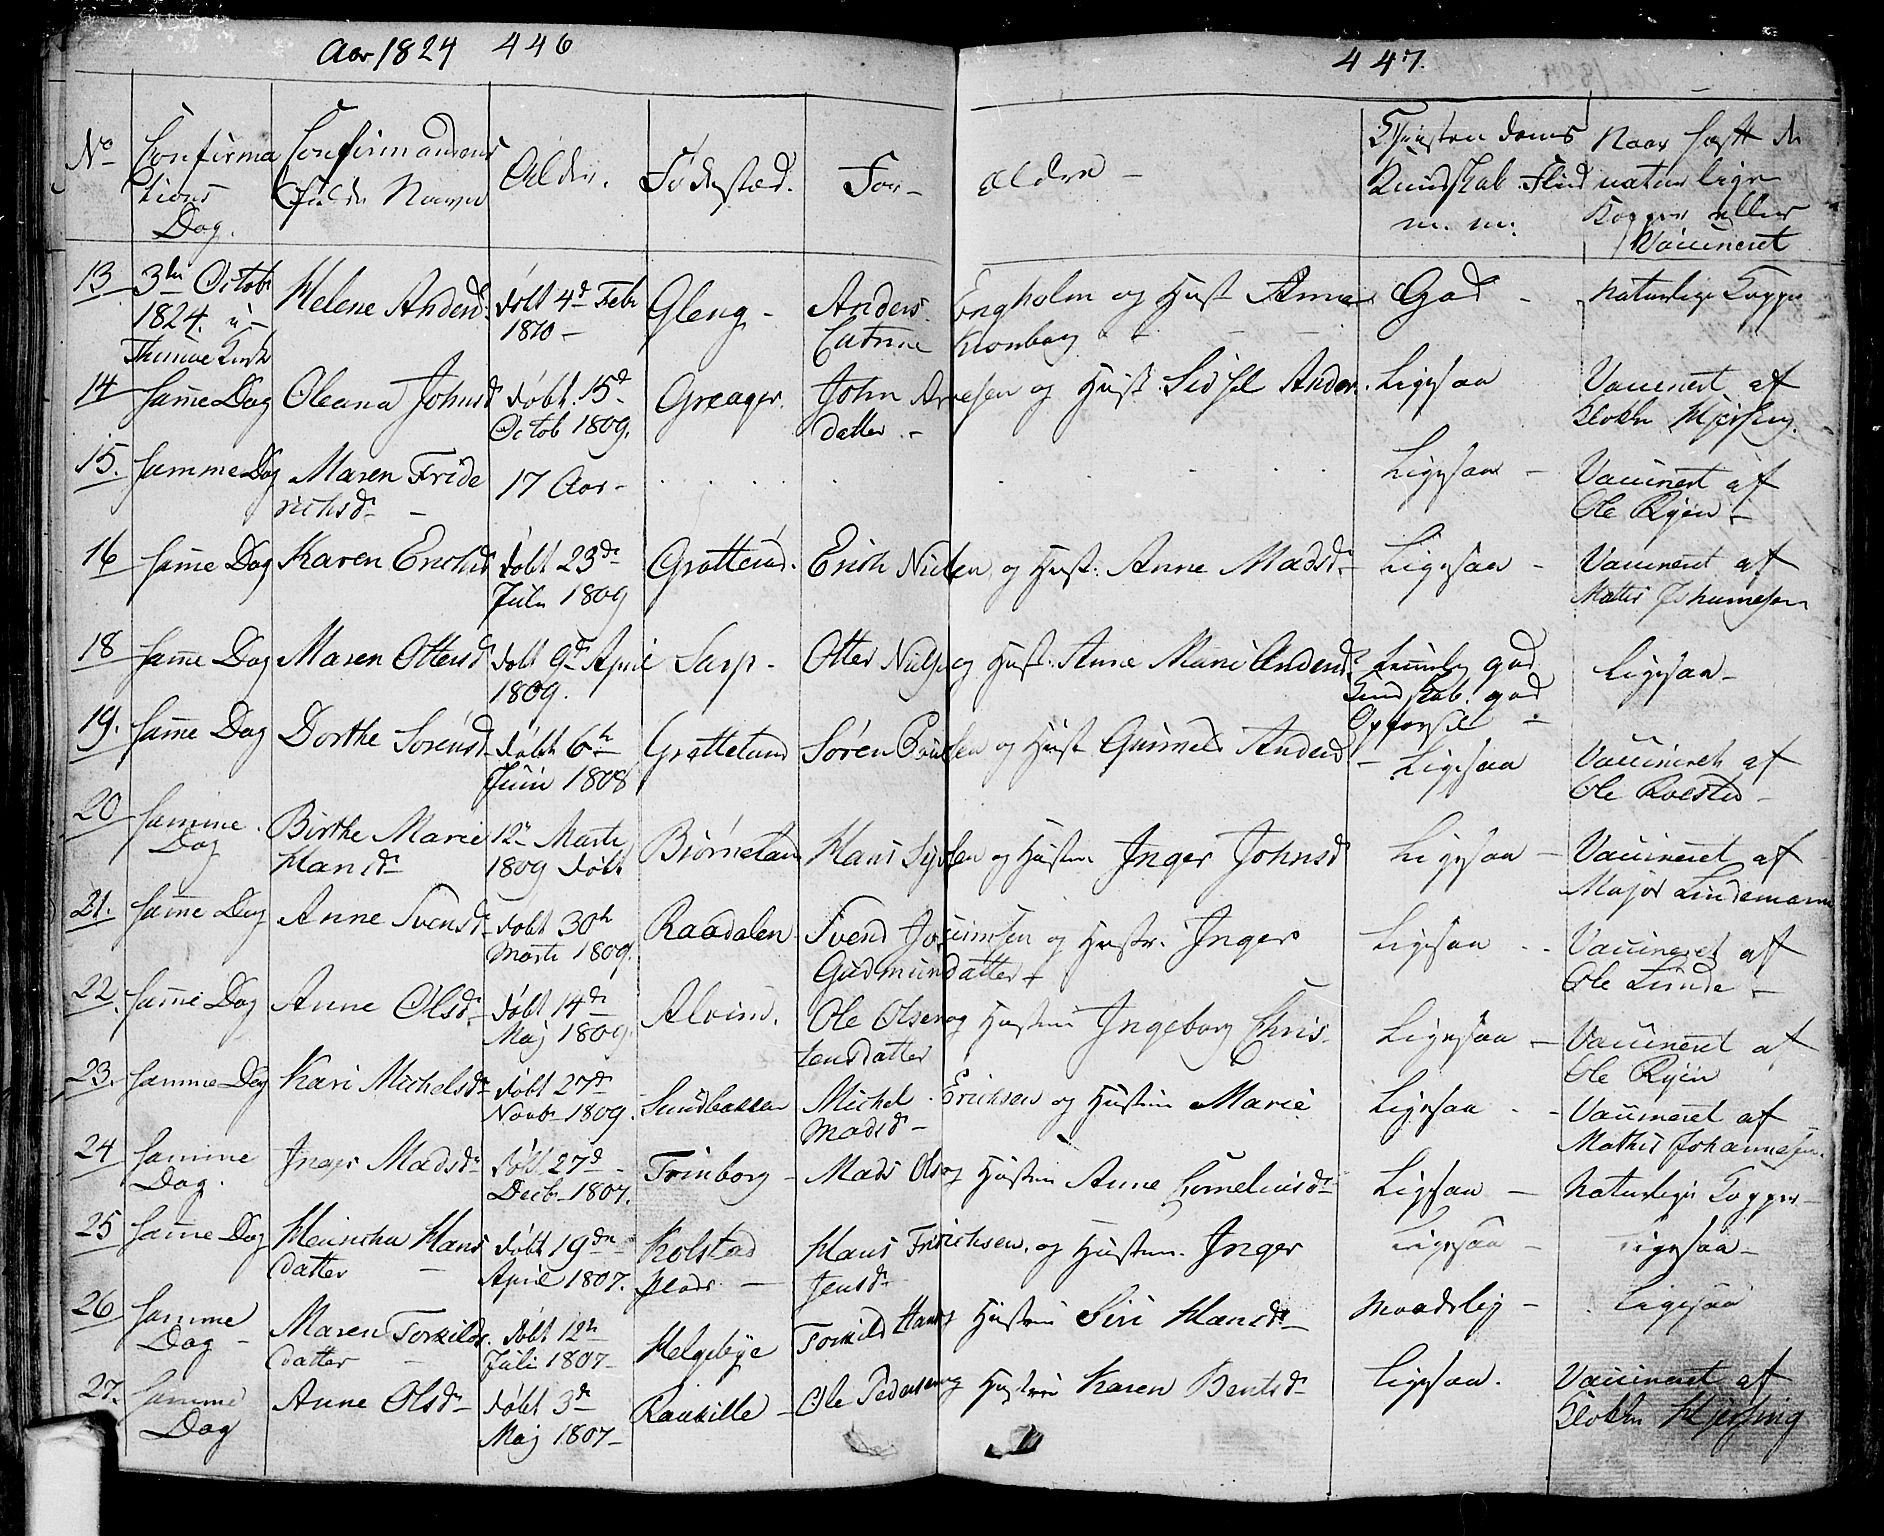 Aar 1824 446
447.
No Confirmations Dag. Confirmandens Fulde Navne Alder. Fødested. For- ældre - Christendoms Kundskab Flid m. m. Naar hafft de naturlige Kopper eller Vaccineret
13 3die Octobr 1824. i Thunøe Kirke Helene Andersd: døbt 4de Febr 1810 - Gleng - Anders Engholm og Hust. Anne Catrine Kronborg - - God - Naturlige Kopper
14 Samme Dag Oleana Johnsd døbt 15d October 1809. Greager. John Arvesen og Hust. Sidsel Andersdatter. - Ligesaa Vaccineret af Klokker Hjersing.
15. Samme Dag Maren Friderichsd - 17 Aar - . . . . Ligesaa - Vaccineret af Ole Ryen -
16 Samme Dag Karen Erichsd døbt 23de Juli 1809 Grøtterød. Erich Nielsen og Hust: Anne Madsd - Ligesaa - Vaccineret af Mathis Johannesen
18 Samme Dag Maren Ottersd døbt 9de April 1809. Sarp - Otter Nielsen og Hust. Anne Marie Andersd: temmelig god Kundskab. god Opførsel - Ligesaa -
19. Samme Dag Dorthe Sørensd døbt 6te Juni 1808 Grøttelund Søren Poulsen og Hust Gunnild Andersd - Ligesaa Vaccineret af Ole Rolsted -
20 Samme Dag Birthe Marie Hansd 12te Marti 1809 døbt Biørneland Hans Syvesen og Hustru Inger Johnsd Ligesaa - Vaccineret af Major Lindemann
21. Samme Dag Anne Svensd - døbt 30te Marti 1809. Raadalen Svend Joenssen og Hustr. Inger Gudmundsdatter Ligesaa - Vaccineret af Ole Lunde -
22. Samme Dag Anne Olsd - døbt 14de Maj 1809. Alvim. Ole Olsen og Hustru Ingeborg Christensdatter Ligesaa - Vaccineret af Ole Ryen
23. Samme Dag Kari Michelsd døbt 27de Novbr 1809. Sundløkken Michel Erichsen og Hustru Marie Madsd - Ligesaa - - Vaccineret af Mathis Johannesen.
24 Samme Dag. Inger Madsd: døbt 27d Decbr 1807. Trinborg - Mads Ols og Hustru Anne Cornelinsd - Ligesaa - Naturlige Kopper -
25 Samme Dag Hansdatter - døbt 19de April 1807. Kolstad plads - Hans Fririchsen og Hustru. Inger Jensd - Ligesaa - Ligesaa -
26 Samme Dag - Maren Torkildsdatter - døbt 12te Juli 1807 - Helgebye Torkild Hans og Hustru Siri Hansd - Maadelig - Ligesaa
27. Samme Dag Anne Olsd - døbt 3de Maj 1807 - Raakille - Ole Pedersen og Hustru Karen Bentsd - Ligesaa. Vaccineret af Klokker Hjersing